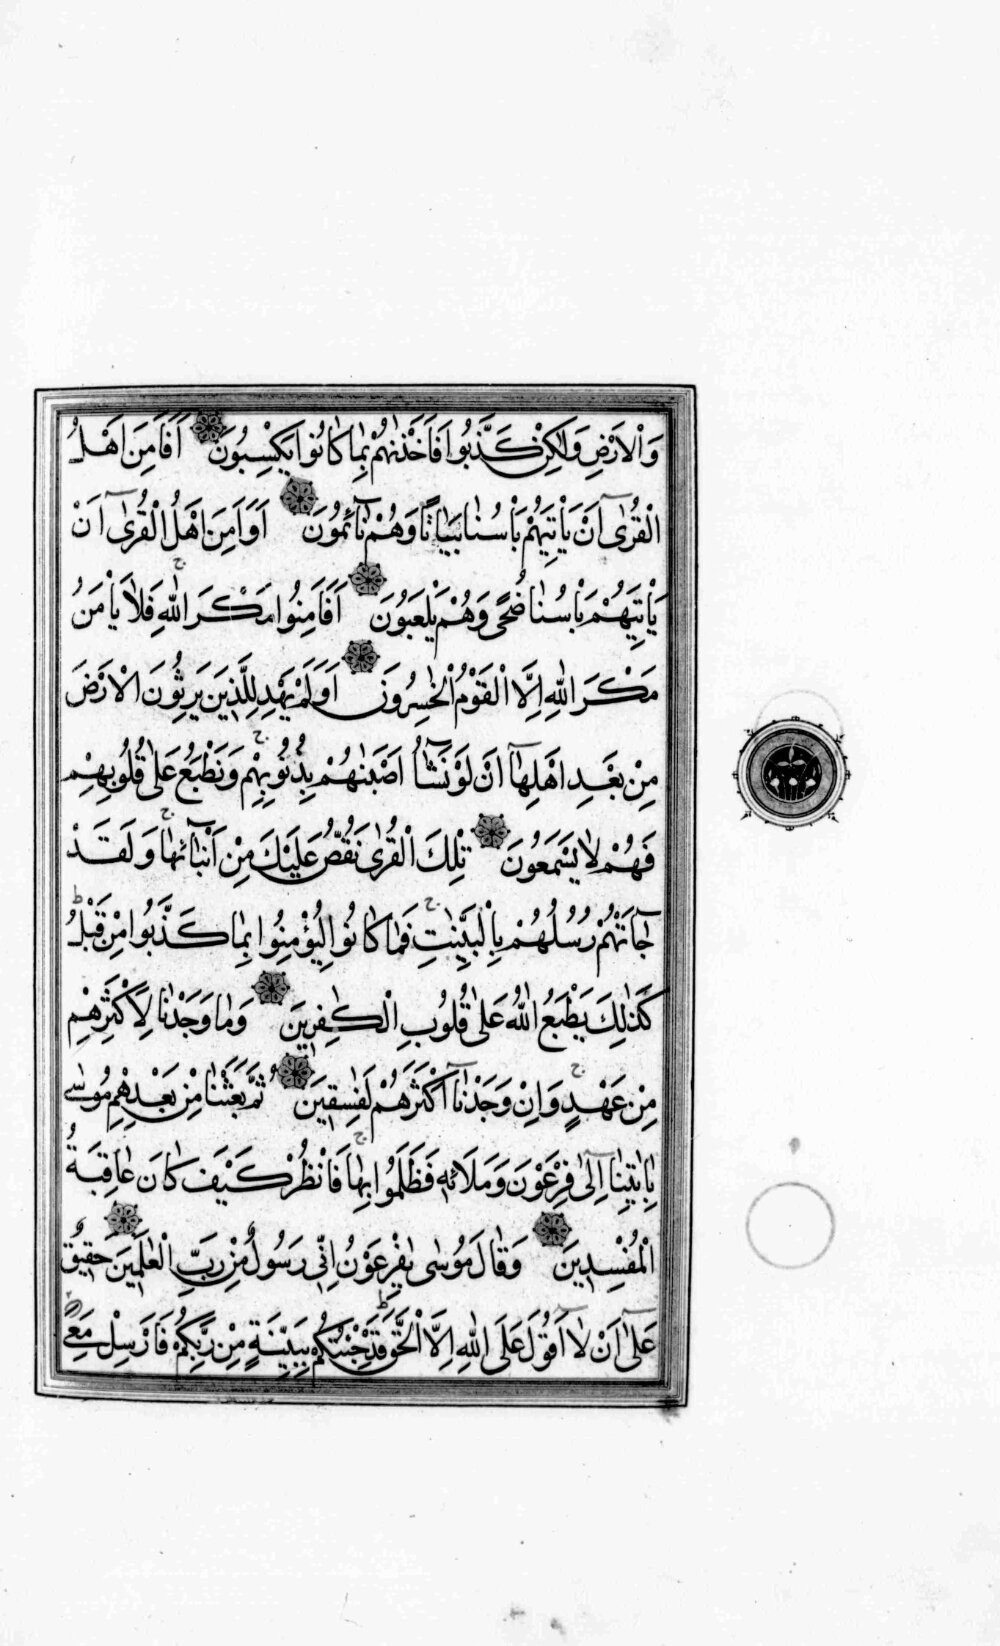 وَالْاَرْضِ وَلٰكِنْ كَذَّبُوا فَاَخَذْنٰهُمْ بِمٰا كٰانُوا يَكْسِبُونَ اَفَاَمِنَ اَهْلُ
الْقُرٰٓى اَنْ يَاْتِيَهُمْ بَاْسُنٰا بَيٰاتًا وَهُمْ نٰٓائِمُونَ اَوَاَمِنَ اَهْلُ الْقُرٰٓى اَنْ
يَاْتِيَهُمْ بَاْسُنٰا ضُحًى وَهُمْ يَلْعَبُونَ اَفَاَمِنُوا مَكْرَ اللّٰهِ فَلٰا يَاْمَنُ
مَكْرَ اللّٰهِ اِلَّا الْقَوْمُ الْخٰسِرُونَ اَوَلَمْ يَهْدِ لِلَّذِينَ يَرِثُونَ الْاَرْضَ
مِنْ بَعْدِ اَهْلِهٰٓا اَنْ لَوْ نَشٰٓاءُ اَصَبْنٰهُمْ بِذُنُوبِهِمْ وَنَطْبَعُ عَلٰى قُلُوبِهِمْ
فَهُمْ لٰا يَسْمَعُونَ تِلْكَ الْقُرٰى نَقُصُّ عَلَيْكَ مِنْ اَنْبٰٓائِهٰا وَلَقَدْ
جٰٓاءَتْهُمْ رُسُلُهُمْ بِالْبَيِّنٰتِ فَمٰا كٰانُوا لِيُؤْمِنُوا بِمٰا كَذَّبُوا مِنْ قَبْلُ
كَذٰلِكَ يَطْبَعُ اللّٰهُ عَلٰى قُلُوبِ الْكٰفِرِينَ وَمٰا وَجَدْنٰا لِاَكْثَرِهِمْ
مِنْ عَهْدٍ وَاِنْ وَجَدْنٰٓا اَكْثَرَهُمْ لَفٰسِقِينَ ثُمَّ بَعَثْنٰا مِنْ بَعْدِهِمْ مُوسٰى
بِاٰيٰتِنٰٓا اِلٰى فِرْعَوْنَ وَمَلَائِهِ فَظَلَمُوا بِهٰا فَانْظُرْ كَيْفَ كٰانَ عٰاقِبَةُ
الْمُفْسِدِينَ وَقٰالَ مُوسٰى يٰفِرْعَوْنُ اِنِّي رَسُولٌ مِنْ رَبِّ الْعٰلَمِينَ حَقِيقٌ
عَلٰٓى اَنْ لٰٓا اَقُولَ عَلَى اللّٰهِ اِلَّا الْحَقَّ قَدْ جِئْتُكُمْ بِبَيِّنَةٍ مِنْ رَبِّكُمْ فَاَرْسِلْ مَعِيَ